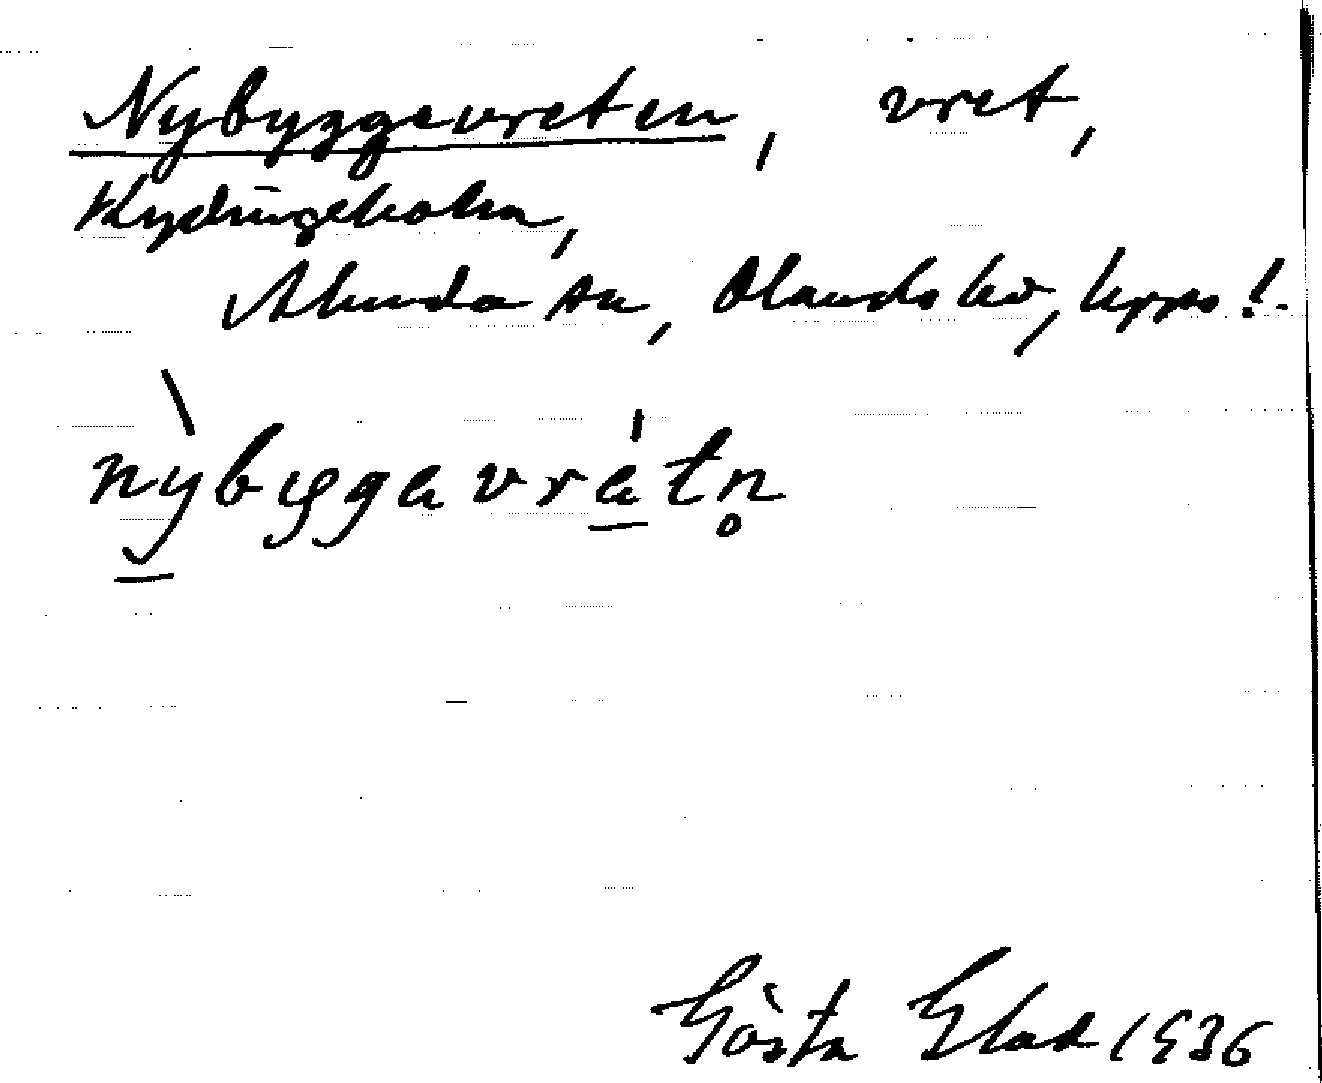 Nybyggevreten, vret,
Kydingeholm,
Almunda sn, Olands hd, Upps l.
nỳbyggavrátn̥
Gösta Elad 1936